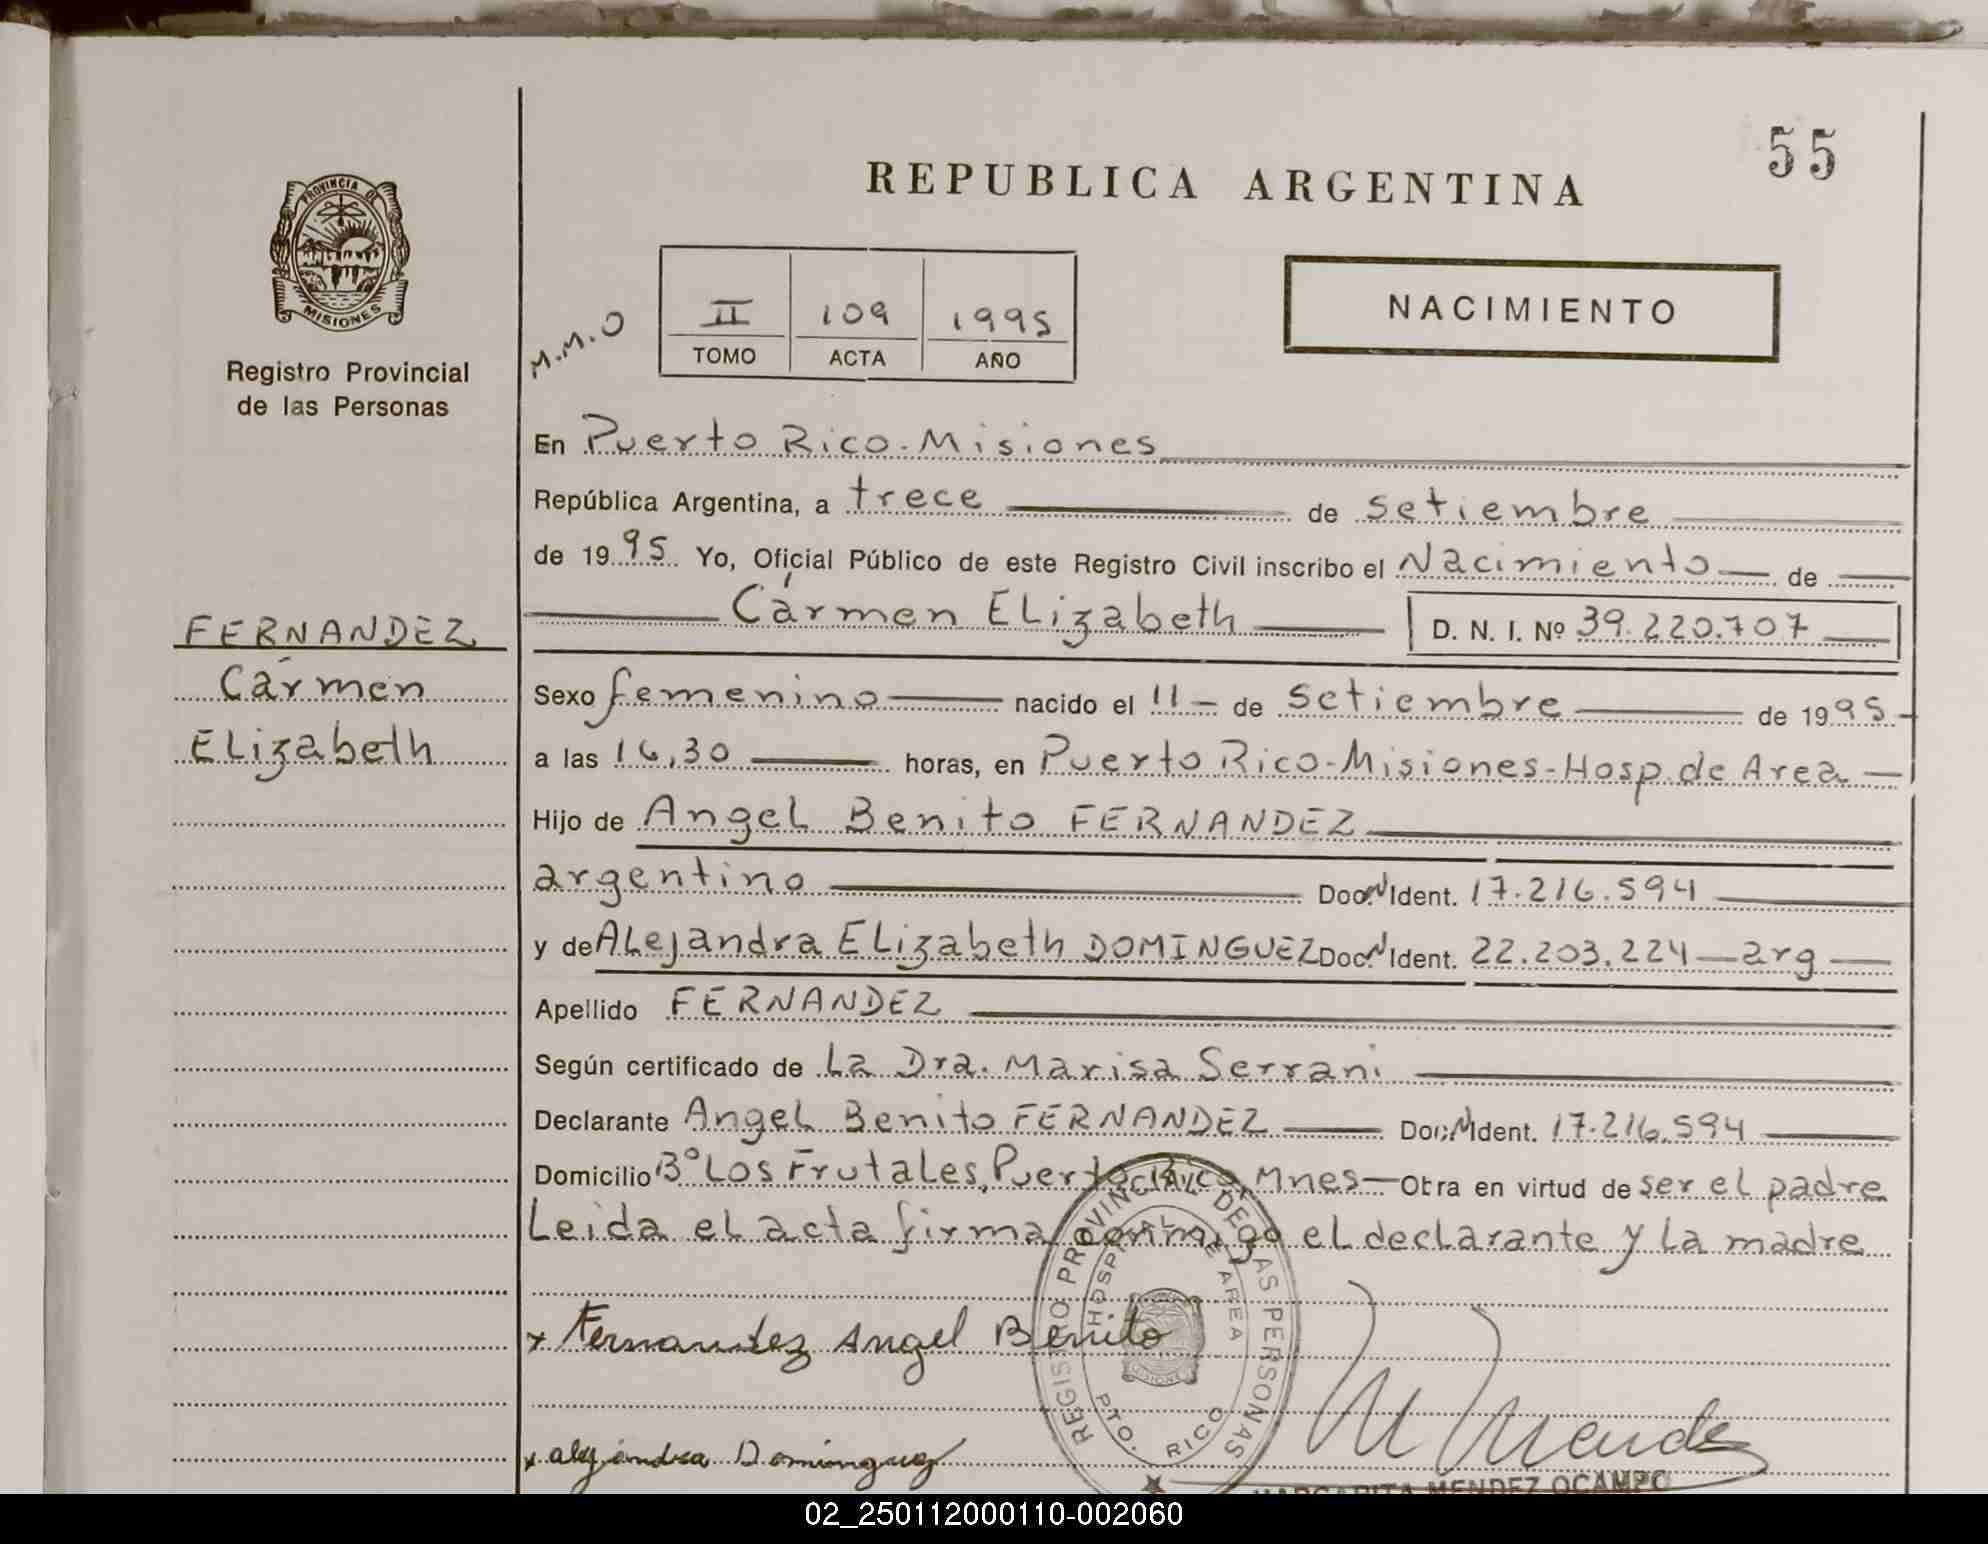 55
REPUBLICA ARGENTINA
PROVINCIA DE
MISIONES
Registro Provincial
de las Personas
M.M.O
II 109 1995
TOMO ACTA AÑO
NACIMIENTO
En Puerto Rico-Misiones
República Argentina, a trece de setiembre
de 1995 Yo, Oficial Público de este Registro Civil inscribo el Nacimiento de
FERNANDEZ
Cármen
Elizabeth
Cármen Elizabeth D. N. I. Nº 39.220.707
Sexo femenino nacido el 11 - de setiembre de 1995
a las 16,30 horas, en Puerto Rico-Misiones-Hosp. de Area
Hijo de Angel Benito FERNANDEZ
argentino Doc. N Ident. 17.216.594
y de Alejandra Elizabeth DOMINGUEZ Doc. N Ident. 22.203.224 - arg
Apellido FERNANDEZ
Según certificado de La Dra. Marisa Serrani
Declarante Angel Benito FERNANDEZ Doc. N Ident. 17.216.594
Domicilio Bº Los Frutales, Puerto Rico, Mnes - Obra en virtud de ser el padre
Leida el acta firma conmigo el declarante y la madre
x Fernandez Angel Benito
REGISTRO PROVINCIAL DE LAS PERSONAS
HOSPITAL DE AREA
PTO. RICO
MISIONES
M Mendez
x alejandra Dominguez
MARGARITA MENDEZ OCAMPO
02_250112000110-002060